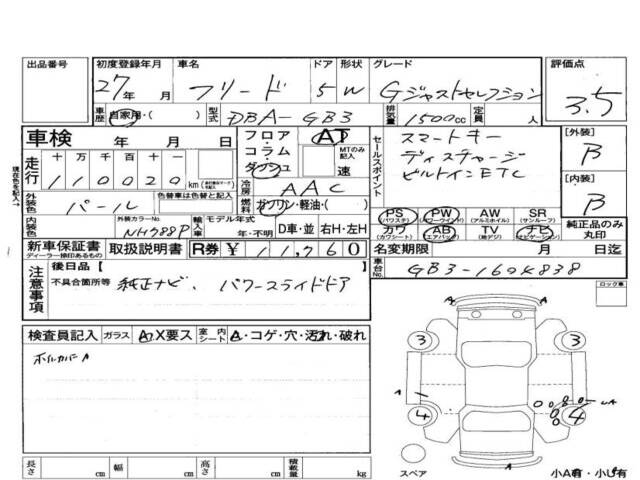 出品番号 初度登録年月 車名 ドア 形状 グレード 評価点
27年 月 フリード 5 W Gジャストセレクション 3.5
車歴 自家用・( ) 型式 DBA-GB3 排気量 1500cc 定員 人
車検 年 月 日 フロア・コラム・ダクシュ AT MTのみ記入 速 セールスポイント スマートキー [外装] B
走行 十 万 千 百 十 一 110020 km 冷房 AAC ディスチャージ
外装色 パール 色替車は色替と記入 燃料 ガソリン・軽油・( ) ビルトインETC [内装] B
内装色 外装カラーNo. NH788P 輸入車 モデル年式 年・不明 D車・並 右H・左H
PS (パワステ) PW (パワーウインド) AW (アルミホイル) SR (サンルーフ)
カワ (カワシート) AB (エアバッグ) TV (地デジ) ナビ (ナビゲーション) 純正品のみ丸印
新車保証書 ディーラー捺印あるもの 取扱説明書 R券 ¥11,760 名変期限 月 日迄
注意事項 後日品 [ ] 車台No. GB3-1604838
不具合箇所等 純正ナビ、パワースライドドア
ロック車
検査員記入 ガラス A・X要ス 室内シート A・コゲ・穴・汚れ・破れ
ホイルカバーA
A
3 3
A A
4 4 UA
スペア 小A有・小U有
長さ cm 幅 cm 高さ cm 積載量 kg
現状色を記入→